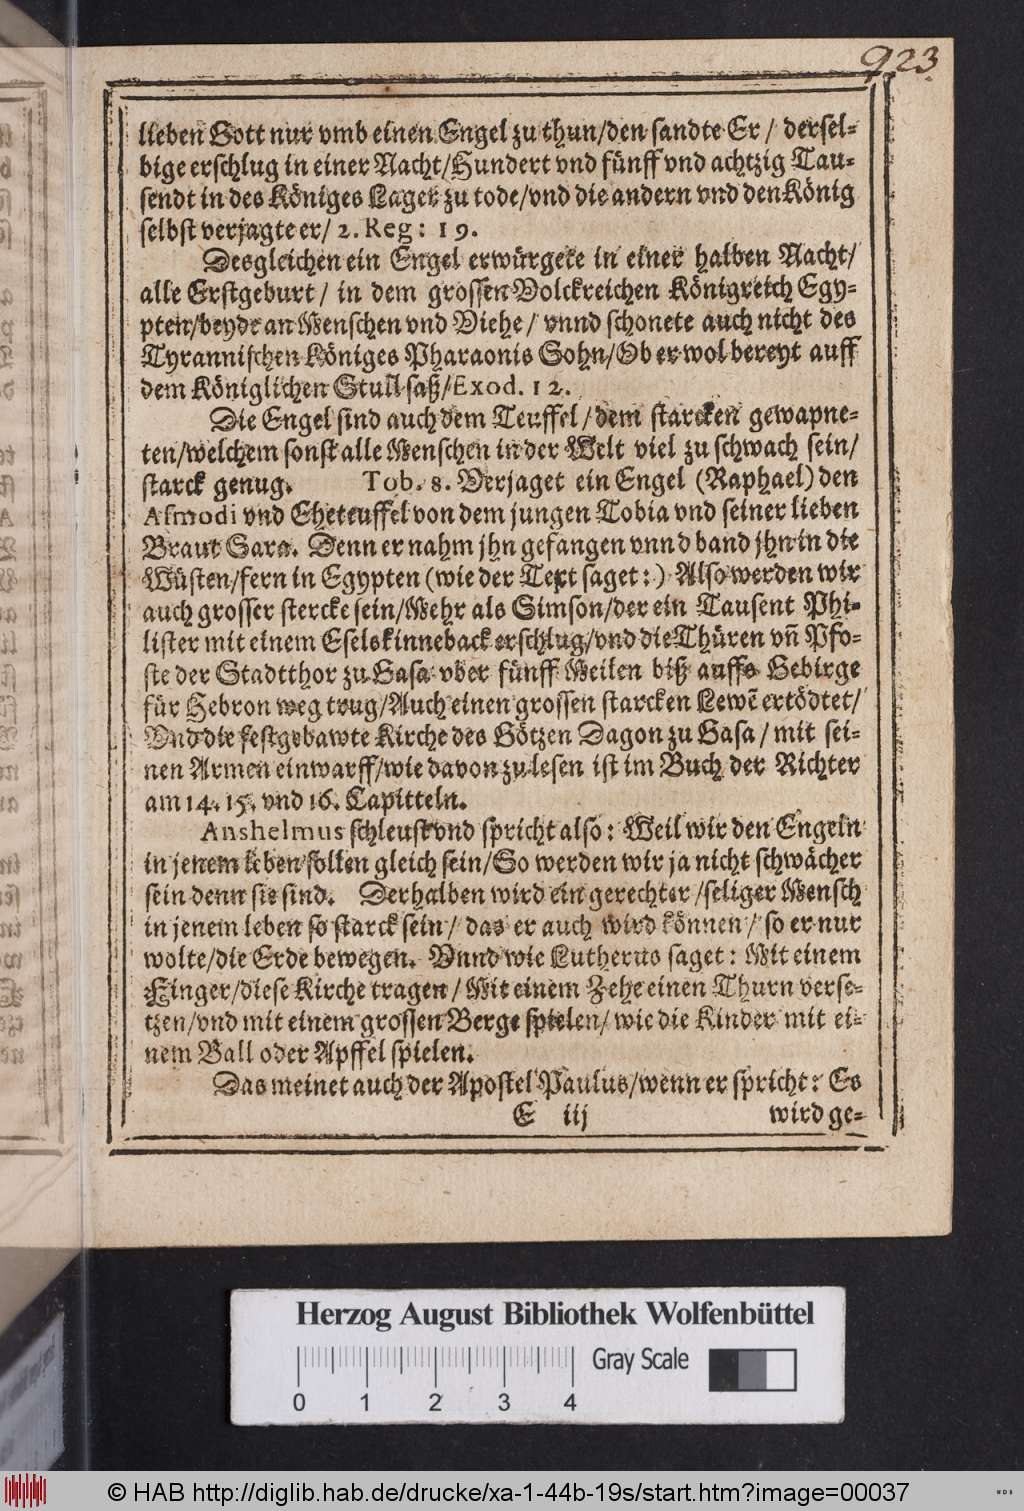 923.
lieben Gott nur vmb einen Engel zu thun/den sandte Er/ dersel-
bige erschlug in einer Nacht/Hundert vnd fünff vnd achtzig Tau-
sendt in des Königes Lager zu tode/vnd die andern vnd den König
selbst verjagte er/ 2. Reg: 19.
Desgleichen ein Engel erwürgete in einer halben Nacht/
alle Erstgeburt/ in dem grossen Volckreichen Königreich Egy-
pten/beyde an Menschen vnd Viehe/ vnnd schonete auch nicht des
Tyrannischen Königes Pharaonis Sohn/Ob er wol bereyt auff
dem Königlichen Stull saß/Exod. 12.
Die Engel sind auch dem Teuffel/dem starcken gewapne-
ten/welchem sonst alle Menschen in der Welt viel zu schwach sein/
starck genug. Tob. 8. Verjaget ein Engel (Raphael) den
Asmodi vnd Eheteuffel von dem jungen Tobia vnd seiner lieben
Braut Sara. Denn er nahm jhn gefangen vnnd band jhn in die
Wüsten/fern in Egypten (wie der Text saget:) Also werden wir
auch grosser stercke sein/Mehr als Simson/der ein Tausent Phi-
lister mit einem Eselskinneback erschlug/vnd die Thüren vñ Pfo-
ste der Stadtthor zu Gasa vber fünff Meilen biß auffs Gebirge
für Hebron weg trug/Auch einen grossen starcken Lewẽ ertödtet/
Vnd die festgebawte Kirche des Götzen Dagon zu Gasa/ mit sei-
nen Armen einwarff/wie davon zu lesen ist im Buch der Richter
am 14. 15. vnd 16. Capitteln.
Anshelmus schleust vnd spricht also: Weil wir den Engeln
in jenem leben sollen gleich sein/So werden wir ja nicht schwächer
sein denn sie sind. Derhalben wird ein gerechter/seliger Mensch
in jenem leben so starck sein/ das er auch wird können/ so er nur
wolte/die Erde bewegen. Vnnd wie Lutherus saget: Mit einem
Finger/diese Kirche tragen/ Mit einem Zehe einen Thurn verse-
tzen/vnd mit einem grossen Berge spielen/ wie die Kinder mit ei-
nem Ball oder Apffel spielen.
Das meinet auch der Apostel Paulus/wenn er spricht: Es
E iij wird ge-
Herzog August Bibliothek Wolfenbüttel
Gray Scale
0 1 2 3 4
© HAB http://diglib.hab.de/drucke/xa-1-44b-19s/start.htm?image=00037